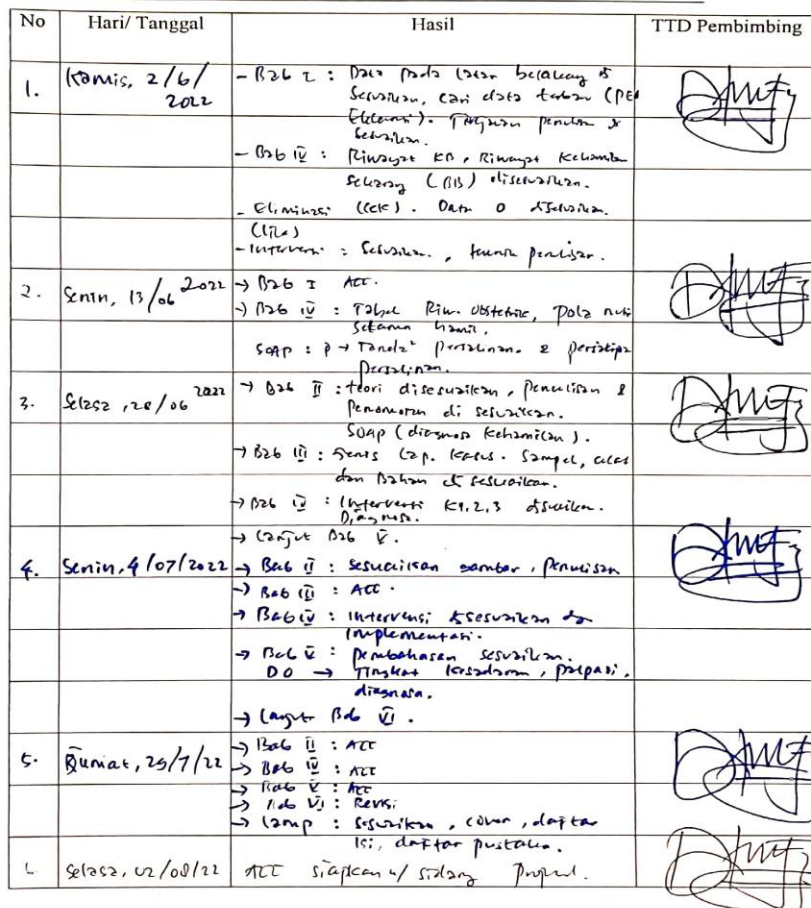 No Hari/ Tanggal Hasil TTD Pembimbing
1. Kamis, 2/6/ 2022
- Bab I : Data pada latar belakang di
sesuaikan, cari data terbaru (PE
Eklamsi). Tujuan penulisan di
sesuaikan.
- Bab IV : Riwayat KB, Riwayat Kehamilan
Sekarang (BB) disesuaikan.
- Eliminasi (cek). Data O disesuaikan.
(lila)
- Intervensi : Sesuaikan, teknik penulisan.
2. Senin, 13/06 2022
→ Bab I ACC.
→ Bab IV : Tabel Riw. Obstetric, Pola nutrisi
selama hamil.
SOAP : P → Tanda² persalinan. & persiapan
persalinan.
3. Selasa, 28/06 2022
→ Bab II : teori disesuaikan, Penulisan &
Penomoran di sesuaikan.
SOAP (diagnosa kehamilan).
→ Bab III : Jenis Lap. Kasus. Sampel, alat
dan Bahan di sesuaikan.
→ Bab IV : Intervensi K1,2,3 disesuaikan.
Diagnosa.
→ Lanjut Bab V.
4. Senin, 4/07/2022
→ Bab II : Sesuaikan gambar, Penulisan
→ Bab III : ACC.
→ Bab IV : Intervensi disesuaikan dg
Implementasi.
→ Bab V : Pembahasan sesuaikan.
DO → Tingkat kesadaran, palpasi,
diagnosa.
→ Lanjut Bab VI.
5. Jumat, 29/7/22
→ Bab II : ACC
→ Bab IV : ACC
→ Bab V : ACC
→ Bab VI : Revisi
→ Lamp : Sesuaikan, cover, daftar
isi, daftar pustaka.
Selasa, 02/08/22 ACC siapkan u/ sidang